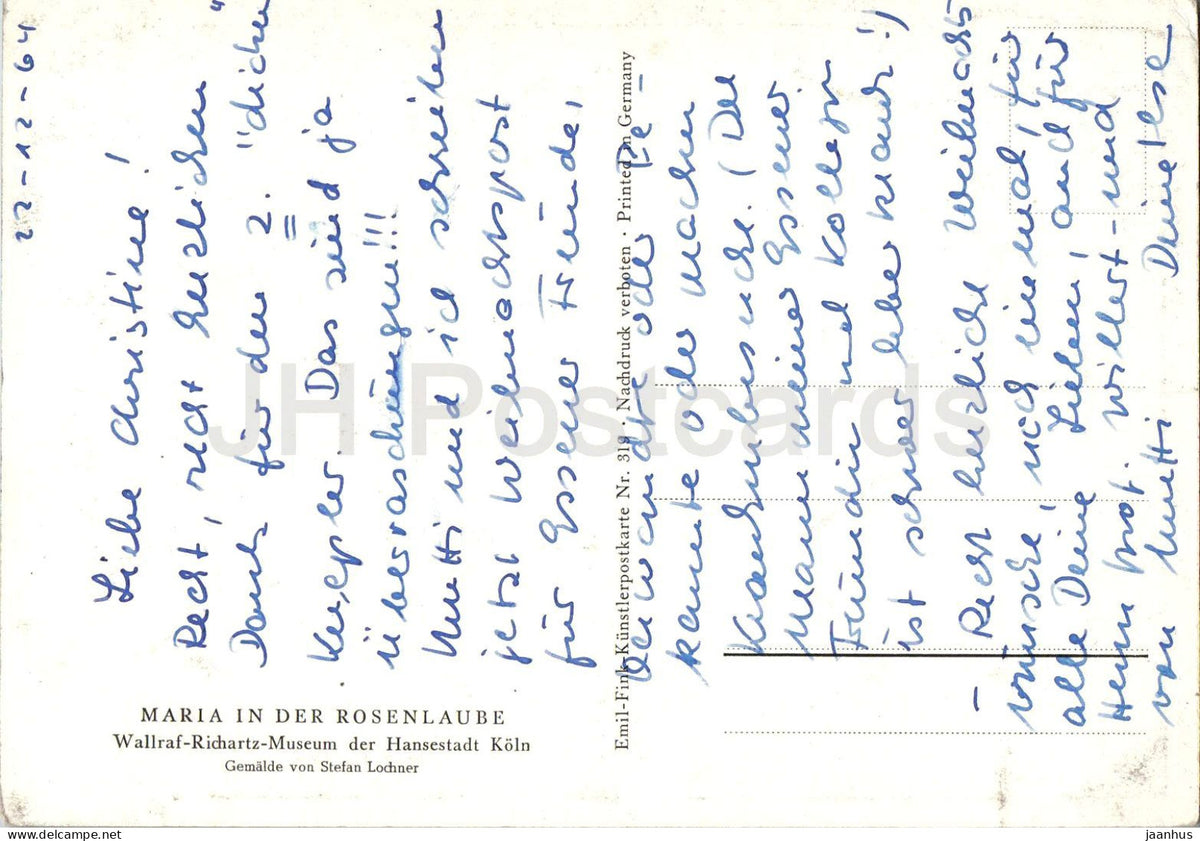 22-12-64
Liebe Christine!
Recht, recht herzlichen
Dank für den 2. "dicken"
Das sind ja
Überraschungen!!!
Mutti und ich schreiben
jetzt Weihnachtspost
für Essener Freunde,
Verwandte oder Be-
kannte oder machen
Krankenbesuche. (Der
Mann meiner Essener
Freundin und Kollegin
ist schwer leberkrank!)
- Recht herzliche Weihnachts-
wünsche, noch einmal, für
alle Deine Lieben, auch für
Herrn
von Mutti und Deine Ilse
MARIA IN DER ROSENLAUBE
Wallraf-Richartz-Museum der Hansestadt Köln
Gemälde von Stefan Lochner
Emil-Fink-Künstlerpostkarte Nr. 318 · Nachdruck verboten · Printed in Germany
JH Postcards
https://www.hippostcard.com/
jaanhus